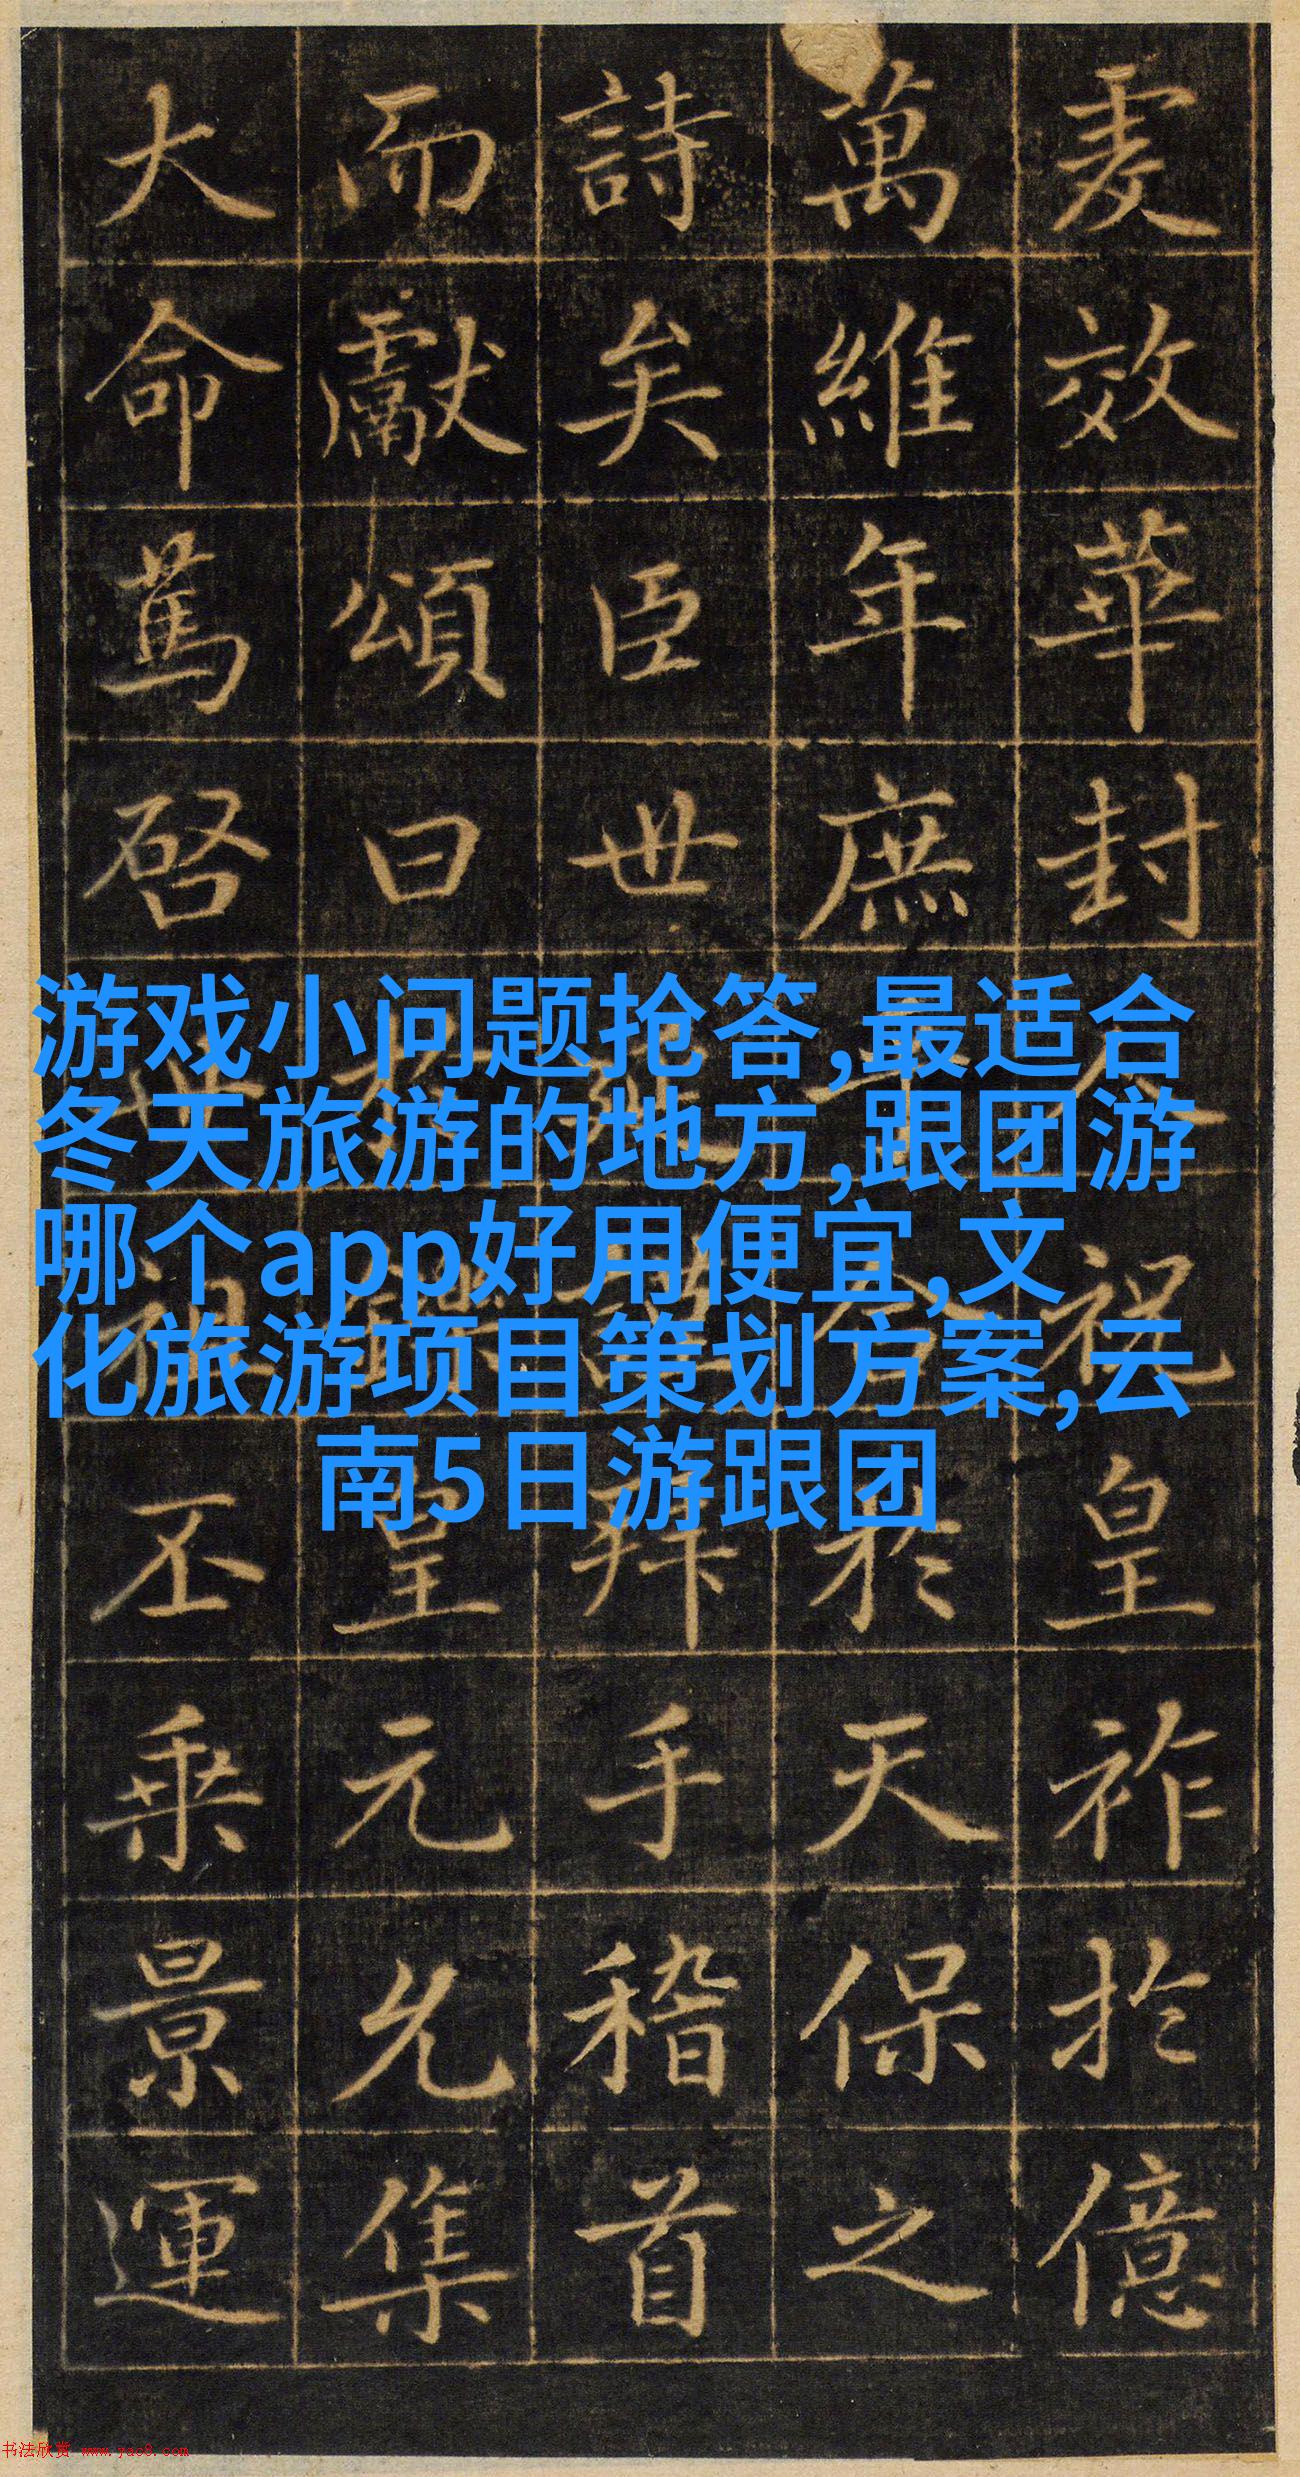 爰效華封祝皇祚於億
萬維年庶合於天保之
詩矣臣世延謹拜手稽首
而獻頌曰於鑠皇元允集
大命篤啓世祖丕乘景運
游戏小问题抢答,最适合
冬天旅游的地方,跟团游
哪个app好用便宜,文
化旅游项目策划方案,云
南5日游跟团
书法欣赏 www.yac8.com